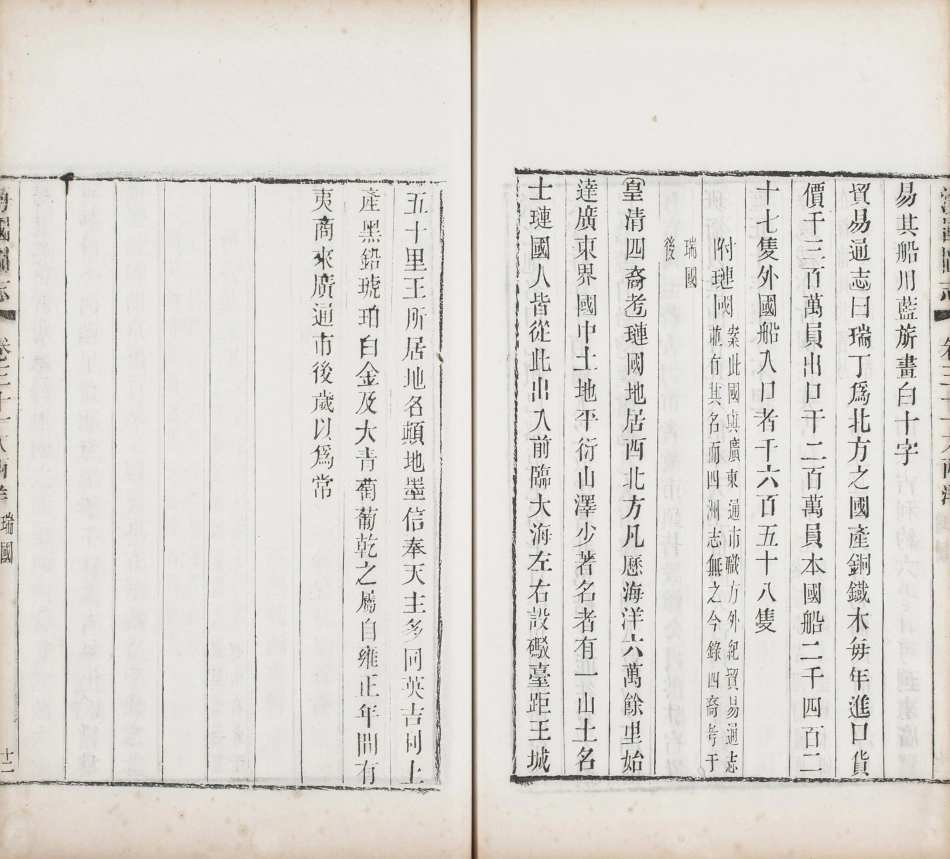 易其船用藍旂畫白十字
貿易通志曰瑞丁爲北方之國產銅鐵木每年進口貨
價千三百萬員出口千二百萬員本國船二千四百二
十七隻外國船入口者千六百五十八隻
附璉國
案此國與廣東通市職方外紀貿易通志
並有其名而四洲志無之今錄四裔考于
瑞國
後
皇清四裔考璉國地居西北方凡歷海洋六萬餘里始
達廣東界國中土地平衍山澤少著名者有一山土名
士璉國人皆從此出入前臨大海左右設礮臺距王城
五十里王所居地名頓地墨信奉天主多同英吉利土
產黑鉛琥珀白金及大青萄葡乾之屬自雍正年間有
夷商來廣通市後歲以爲常
海國圖志
卷三十八西洋
瑞國
十二